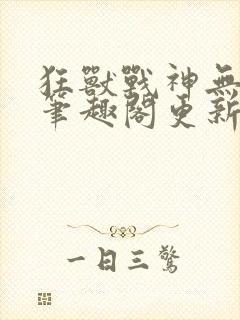 狂獸戰神無
筆趣閣更新
一日三驚